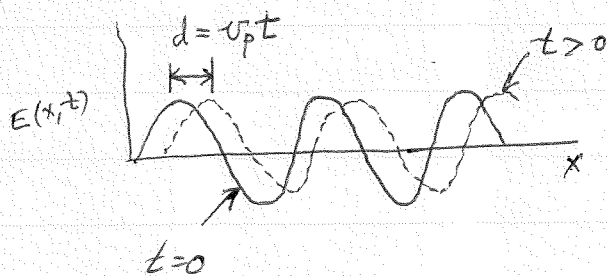 d = v_p t
t > 0
E(x,t)
x
t=0